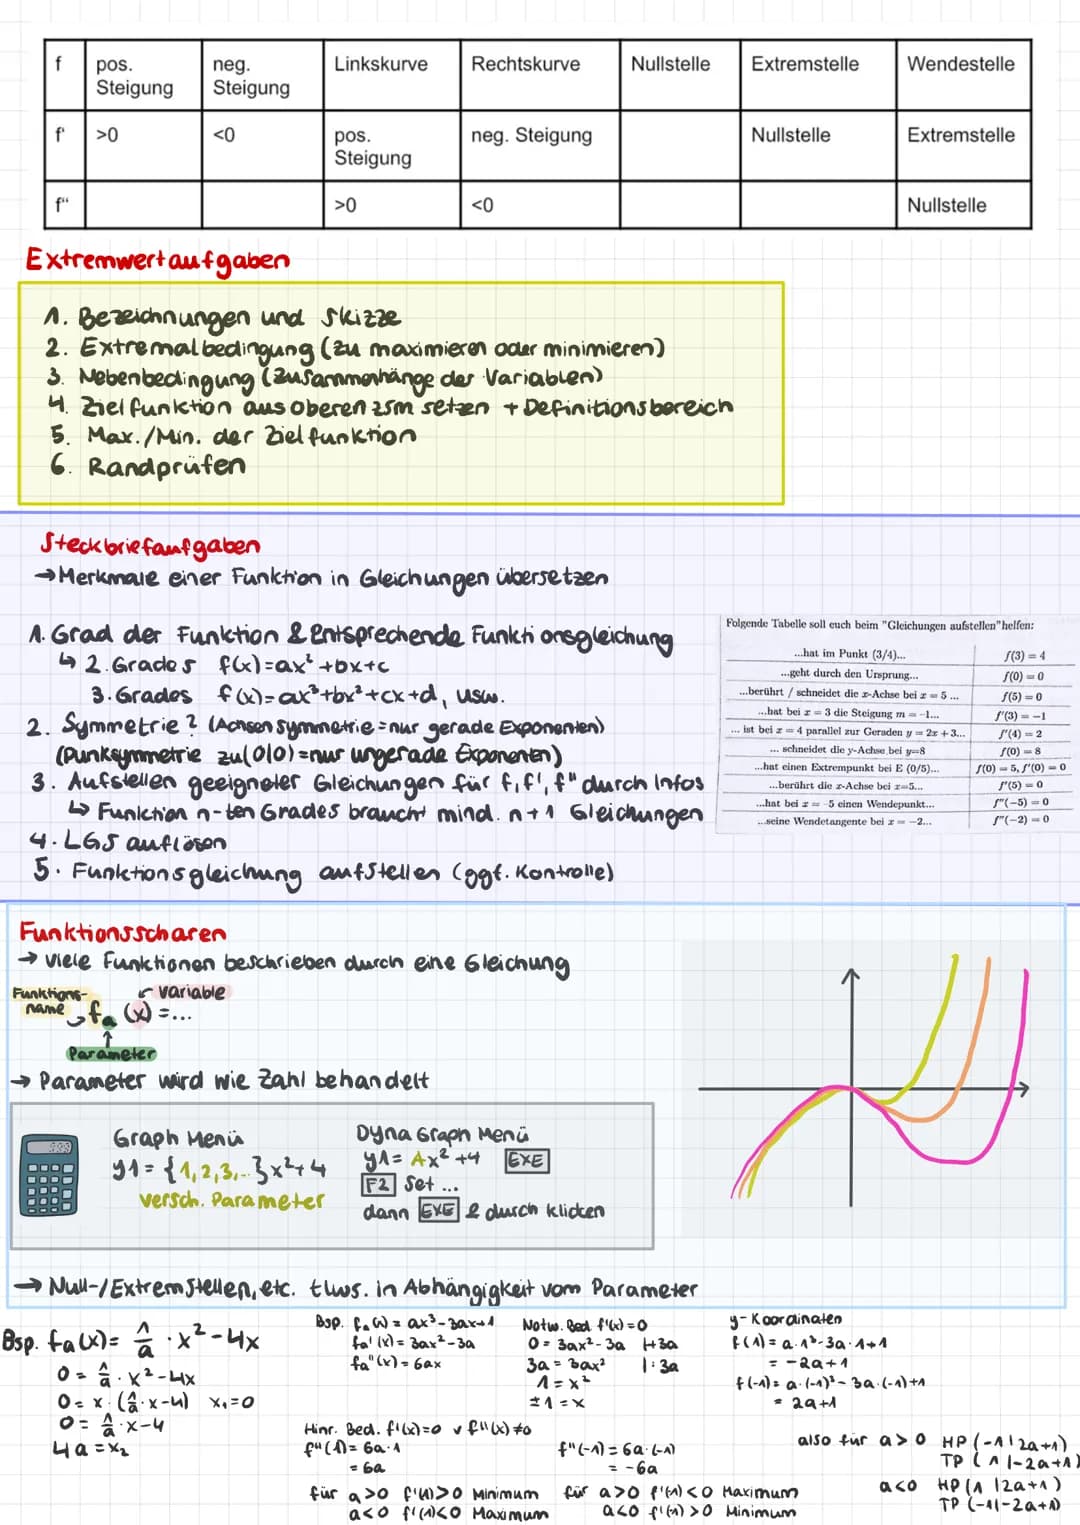 f pos. Steigung neg. Steigung Linkskurve Rechtskurve Nullstelle Extremstelle Wendestelle
f' >0 <0 pos. Steigung neg. Steigung Nullstelle Extremstelle
f" >0 <0 Nullstelle
Extremwertaufgaben
1. Bezeichnungen und Skizze
2. Extremalbedingung (zu maximieren oder minimieren)
3. Nebenbedingung (Zusammenhänge der Variablen)
4. Zielfunktion aus oberen zsm setzen + Definitionsbereich
5. Max./Min. der Zielfunktion
6. Randprüfen
Steckbriefaufgaben
→ Merkmale einer Funktion in Gleichungen übersetzen
1. Grad der Funktion & Entsprechende Funktionsgleichung
↳ 2. Grades f(x)=ax²+bx+c
3. Grades f(x)=ax³+bx²+cx+d, usw.
2. Symmetrie? (Achsensymmetrie = nur gerade Exponenten)
(Punksymmetrie zu (0|0) = nur ungerade Exponenten)
3. Aufstellen geeigneter Gleichungen für f, f', f" durch Infos
↳ Funktion n-ten Grades braucht mind. n+1 Gleichungen
4. LGS auflösen
5. Funktionsgleichung aufstellen (ggf. Kontrolle)
Folgende Tabelle soll euch beim "Gleichungen aufstellen" helfen:
...hat im Punkt (3/4)... f(3) = 4
...geht durch den Ursprung... f(0) = 0
...berührt / schneidet die x-Achse bei x = 5 ... f(5) = 0
...hat bei x = 3 die Steigung m = -1... f'(3) = -1
... ist bei x = 4 parallel zur Geraden y = 2x + 3... f'(4) = 2
... schneidet die y-Achse bei y=8 f(0) = 8
...hat einen Extrempunkt bei E (0/5)... f(0) = 5, f'(0) = 0
...berührt die x-Achse bei x=5... f'(5) = 0
...hat bei x = -5 einen Wendepunkt... f"(-5) = 0
...seine Wendetangente bei x = -2... f"(-2) = 0
Funktionsscharen
→ viele Funktionen beschrieben durch eine Gleichung
Funktions-name Variable
fa (x) = ...
Parameter
→ Parameter wird wie Zahl behandelt
Graph Menü
y1 = {1,2,3,...}x²+4
versch. Parameter
Dyna Graph Menü
y1 = Ax² +4 EXE
F2 Set ...
dann EXE & durch klicken
→ Null-/Extremstellen, etc. tlws. in Abhängigkeit vom Parameter
Bsp. fa(x) = 1/a · x² - 4x
0 = 1/a · x² - 4x
0 = x · (1/a · x - 4) x₁ = 0
0 = 1/a · x - 4
4a = x₂
Bsp. fa(x) = ax³ - 3ax + 1
fa'(x) = 3ax² - 3a
fa"(x) = 6ax
Notw. Bed. f'(x) = 0
0 = 3ax² - 3a |+3a
3a = 3ax² |:3a
1 = x²
±1 = x
y-Koordinaten
f(1) = a·1³ - 3a·1 + 1
= -2a+1
f(-1) = a·(-1)³ - 3a·(-1)+1
= 2a+1
Hinr. Bed. f'(x)=0 v f"(x)≠0
f"(1) = 6a·1
= 6a
für a>0 f'(1)>0 Minimum
a<0 f'(1)<0 Maximum
f"(-1) = 6a·(-1)
= -6a
für a>0 f'(1)<0 Maximum
a<0 f'(1)>0 Minimum
also für a>0 HP (-1|2a+1)
TP (1|-2a+1)
a<0 HP (1|2a+1)
TP (-1|-2a+1)